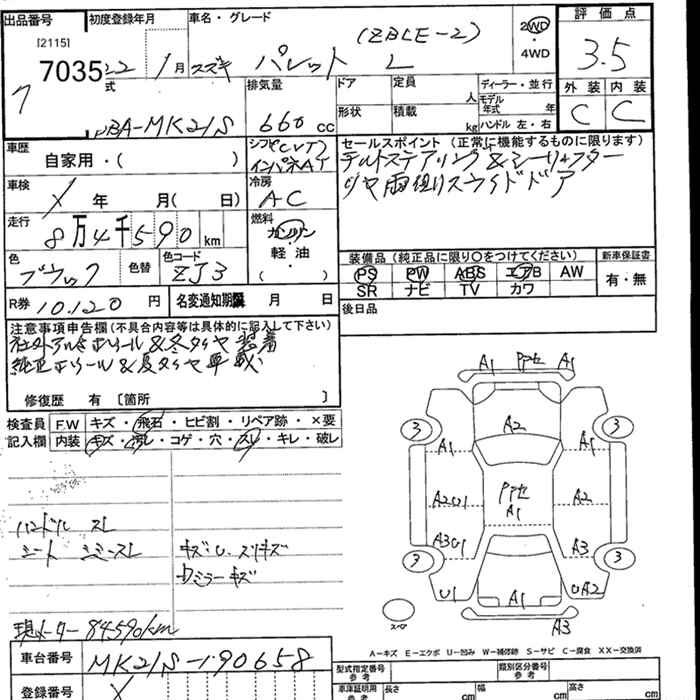 出品番号 初度登録年月 車名・グレード 評価点
[2115] 7035 22 1月 スズキ パレット L (ZBCE-2) 2WD ・ 4WD 3.5
7 式
排気量 ドア 定員 人 ディーラー・並行 外装 内装
DBA-MK21S 660cc 形状 積載 kg モデル年式 年 ハンドル 左・右 C C
車歴 自家用・( ) シフト CVT セールスポイント (正常に機能するものに限ります)
インパネAT チルトステアリング&シートリフター
車検 X 年 月( 日) 冷房 AC リヤ両側スライドドア
走行 8万4千590km 燃料 ガソリン・軽油・( )
色 ブラック 色替 色コード ZJ3
装備品 (純正品に限り○をつけてください) 新車保証書
PS PW ABS エアB AW 有・無
SR ナビ TV カワ
R券 10,120円 名変通知期限 月 日 後日品
注意事項申告欄(不具合内容等は具体的に記入して下さい)
社外アルミホイール&冬タイヤ装着
純正ホイール&夏タイヤ車載
修復歴 有 〔箇所 〕
検査員記入欄 F.W キズ・飛石・ヒビ割・リペア跡・×要
内装 キズ・汚レ・コゲ・穴・スレ・キレ・破レ
ハンドル スレ
シート シミ・スレ
キズ・U、スリキズ
Dミラーキズ
現メーター 84590km
A1 Pﾀｾ A1
3 A2 3
A1 A1
A2U1 Pﾀｾ A1 A2
A3U1 A3
3 3
U1 A1 UA2
スペア A3
A-キズ E-エクボ U-凹み W-補修跡 S-サビ C-腐食 XX-交換済
車台番号 MK21S-190658
登録番号 X
型式指定番号 参考 類別区分番号 参考
車庫証明用 参考 長さ cm 幅 cm 高さ cm